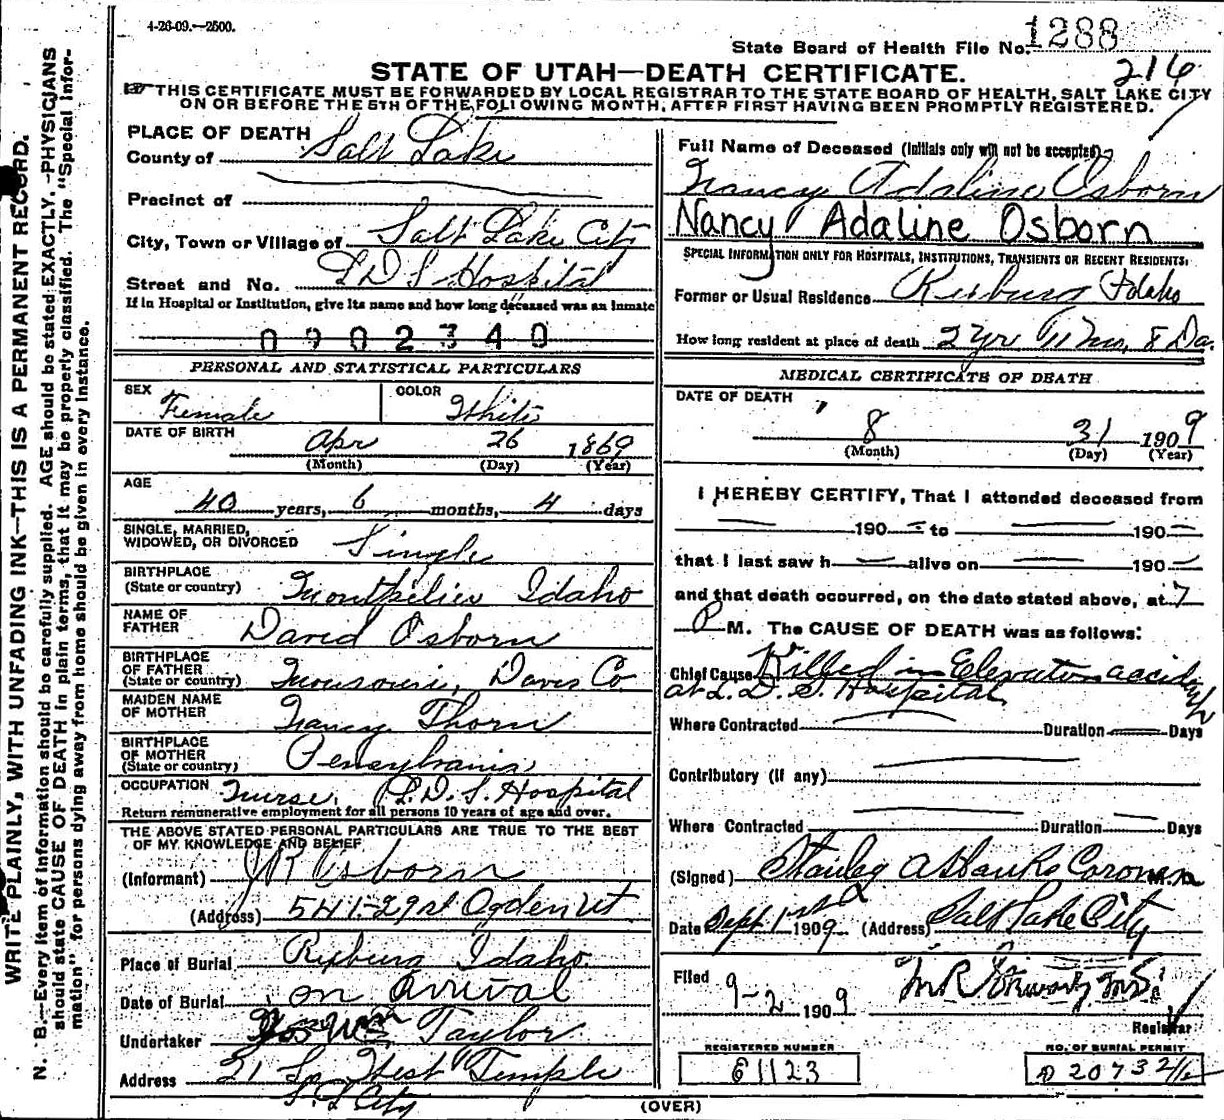 4-26-09.—2500.
State Board of Health File No. 1288
216
STATE OF UTAH—DEATH CERTIFICATE.
THIS CERTIFICATE MUST BE FORWARDED BY LOCAL REGISTRAR TO THE STATE BOARD OF HEALTH, SALT LAKE CITY
ON OR BEFORE THE 5TH OF THE FOLLOWING MONTH, AFTER FIRST HAVING BEEN PROMPTLY REGISTERED.
WRITE PLAINLY, WITH UNFADING INK—THIS IS A PERMANENT RECORD.
N. B.—Every item of information should be carefully supplied. AGE should be stated EXACTLY. PHYSICIANS
should state CAUSE OF DEATH in plain terms, that it may be properly classified. The "Special Infor-
mation" for persons dying away from home should be given in every instance.
PLACE OF DEATH
County of Salt Lake
Precinct of
City, Town or Village of Salt Lake City
Street and No. L D S Hospital
If in Hospital or Institution, give its name and how long deceased was an inmate
0902340
PERSONAL AND STATISTICAL PARTICULARS
SEX Female COLOR White
DATE OF BIRTH Apr 26 1869
(Month) (Day) (Year)
AGE
40 years, 6 months, 4 days
SINGLE, MARRIED,
WIDOWED, OR DIVORCED Single
BIRTHPLACE
(State or country) Montpilier Idaho
NAME OF
FATHER David Osborn
BIRTHPLACE
OF FATHER
(State or country) Missouri, Daves Co
MAIDEN NAME
OF MOTHER Nancy Thorn
BIRTHPLACE
OF MOTHER
(State or country) Pensylvania
OCCUPATION Nurse L.D.S. Hospital
Return remunerative employment for all persons 10 years of age and over.
THE ABOVE STATED PERSONAL PARTICULARS ARE TRUE TO THE BEST
OF MY KNOWLEDGE AND BELIEF
(Informant) J R Osborn
(Address) 541-29 st Ogden Ut
Place of Burial Rexburg Idaho
Date of Burial on Arrival
Undertaker Jos Wm Taylor
Address 21 So West Temple
S. L City
Full Name of Deceased (Initials only will not be accepted)
Nancy Adaline Osborn
Nancy Adaline Osborn
SPECIAL INFORMATION ONLY FOR HOSPITALS, INSTITUTIONS, TRANSIENTS OR RECENT RESIDENTS.
Former or Usual Residence Rexburg Idaho
How long resident at place of death 2 yr 11 mo, 8 Da.
MEDICAL CERTIFICATE OF DEATH
DATE OF DEATH
8 31 1909
(Month) (Day) (Year)
I HEREBY CERTIFY, That I attended deceased from
190 to 190
that I last saw h alive on 190
and that death occurred, on the date stated above, at 7
P M. The CAUSE OF DEATH was as follows:
Chief Cause Killed in Elevator accident
at L. D. S. Hospital
Where Contracted Duration Days
Contributory (if any)
Where Contracted Duration Days
(Signed) Stanley A Hanks Coroner M.D.
Date Sept 1st 1909 (Address) Salt Lake City
Filed 9-2 1909
Registrar
REGISTERED NUMBER NO. OF BURIAL PERMIT
61123
(OVER)